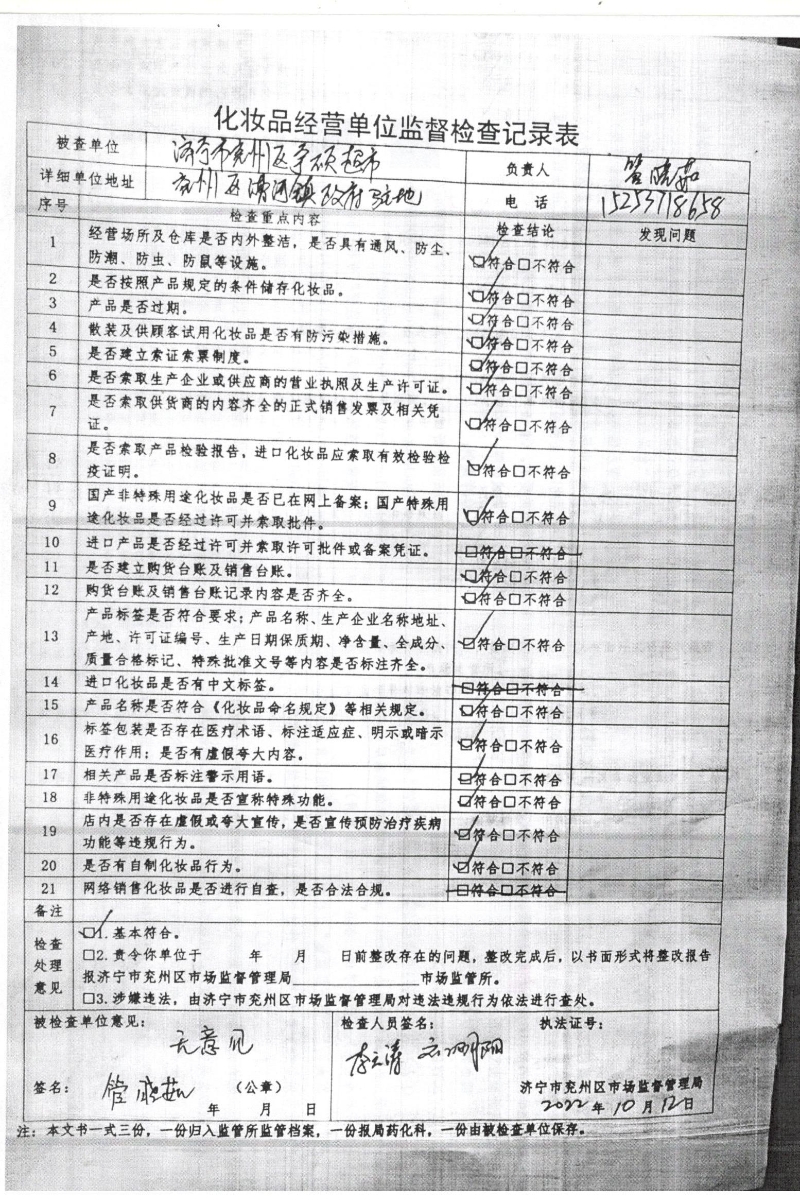 化妆品经营单位监督检查记录表
被查单位 济宁市兖州区 超市 负责人 管晓茹
详细单位地址 兖州区漕河镇政府驻地 电 话 15253718658
序号 检查重点内容 检查结论 发现问题
1 经营场所及仓库是否内外整洁，是否具有通风、防尘、
防潮、防虫、防鼠等设施。 ☑符合□不符合
2 是否按照产品规定的条件储存化妆品。 ☑符合□不符合
3 产品是否过期。 ☑符合□不符合
4 散装及供顾客试用化妆品是否有防污染措施。 ☑符合□不符合
5 是否建立索证索票制度。 ☑符合□不符合
6 是否索取生产企业或供应商的营业执照及生产许可证。 ☑符合□不符合
7 是否索取供货商的内容齐全的正式销售发票及相关凭
证。 ☑符合□不符合
8 是否索取产品检验报告，进口化妆品应索取有效检验检
疫证明。 ☑符合□不符合
9 国产非特殊用途化妆品是否已在网上备案；国产特殊用
途化妆品是否经过许可并索取批件。 ☑符合□不符合
10 进口产品是否经过许可并索取许可批件或备案凭证。 □符合□不符合
11 是否建立购货台账及销售台账。 ☑符合□不符合
12 购货台账及销售台账记录内容是否齐全。 ☑符合□不符合
13 产品标签是否符合要求；产品名称、生产企业名称地址、
产地、许可证编号、生产日期保质期、净含量、全成分、
质量合格标记、特殊批准文号等内容是否标注齐全。 ☑符合□不符合
14 进口化妆品是否有中文标签。 □符合□不符合
15 产品名称是否符合《化妆品命名规定》等相关规定。 ☑符合□不符合
16 标签包装是否存在医疗术语、标注适应症、明示或暗示
医疗作用；是否有虚假夸大内容。 ☑符合□不符合
17 相关产品是否标注警示用语。 ☑符合□不符合
18 非特殊用途化妆品是否宣称特殊功能。 ☑符合□不符合
19 店内是否存在虚假或夸大宣传，是否宣传预防治疗疾病
功能等违规行为。 ☑符合□不符合
20 是否有自制化妆品行为。 ☑符合□不符合
21 网络销售化妆品是否进行自查，是否合法合规。 □符合□不符合
备注
检查处理意见 ☑1. 基本符合。
□2. 责令你单位于 年 月 日前整改存在的问题，整改完成后，以书面形式将整改报告
报济宁市兖州区市场监督管理局____________市场监管所。
□3. 涉嫌违法，由济宁市兖州区市场监督管理局对违法违规行为依法进行查处。
被检查单位意见： 检查人员签名： 执法证号：
无意见 李元涛
签名： 管晓茹 （公章） 济宁市兖州区市场监督管理局
年 月 日 2022年10月12日
注：本文书一式三份，一份归入监管所监管档案，一份报局药化科，一份由被检查单位保存。